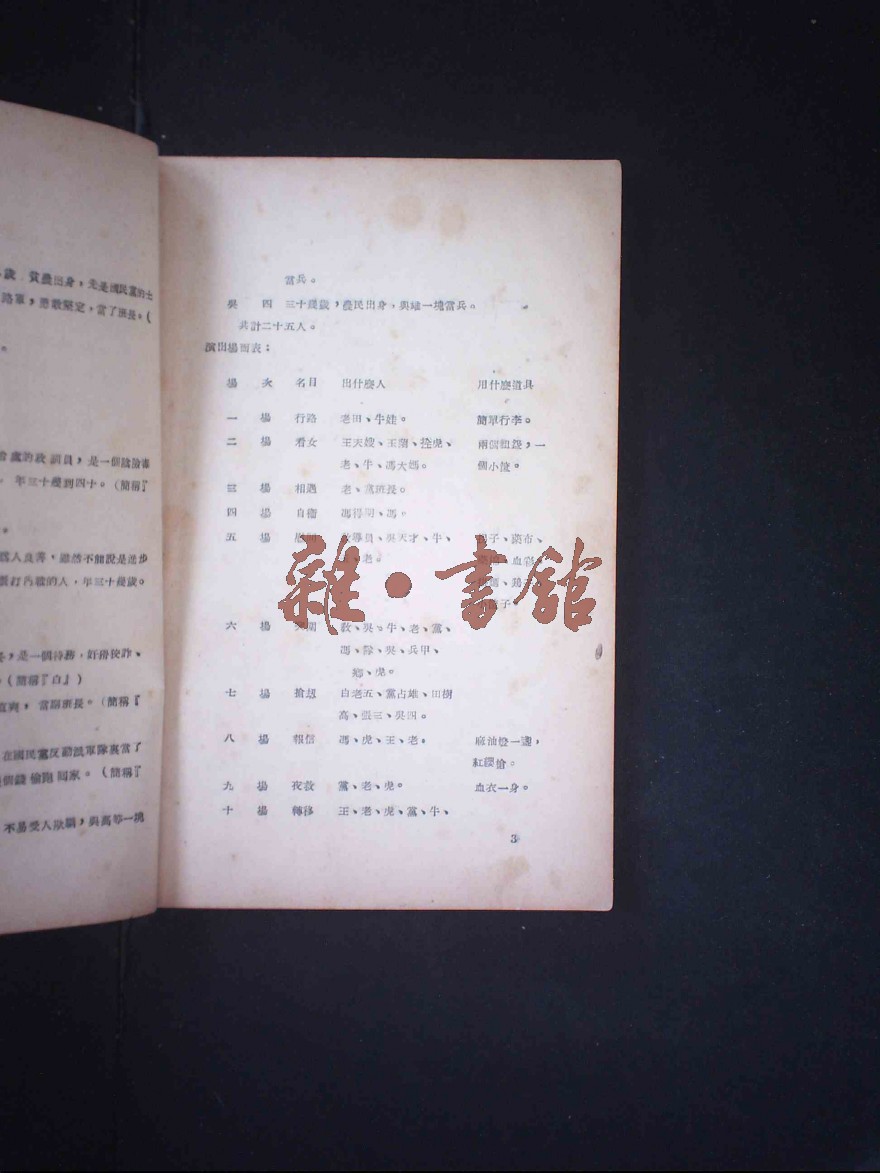 歲 貧農出身，先是國民黨的士
路軍，應敵堅定，當了班長。（
。
處的政訓員，是一個陰險毒
。年三十幾到四十。（簡稱『
。
爲人良善，雖然不能說是進步
的人，年三十幾歲。
，是一個特務，奸猾狡詐、
（簡稱『白』）
直爽，當副班長。（簡稱『
在國民黨反動派軍隊裏當了
個錢偷跑回家。（簡稱『
不易受人欺騙，與高等一塊
當兵。
吳 四 三十幾歲，農民出身，與雄一塊當兵。
共計二十五人。
演出場面表：
場 次 名目 出什麼人 用什麼道具
一 場 行路 老田、牛娃。 簡單行李。
二 場 看女 王大嫂、王蘭、拴虎、 兩個紐綫，一
老、牛、馮大媽。 個小筐。
三 場 相遇 老、黨班長。
四 場 自衛 馮得明、馮。
五 場 教導員、吳天才、牛、 子、漢布、
老。 血
六 場 教、吳、牛、老、黨、
馮、隊、吳、兵甲、
鄉、虎。
七 場 搶刼 白老五、黨占雄、田樹
高、張三、吳四。
八 場 報信 馮、虎、王、老。 麻油燈一盞，
紅纓槍。
九 場 夜救 黨、老、虎。 血衣一身。
十 場 轉移 王、老、虎、黨、牛、
3
雜·書館